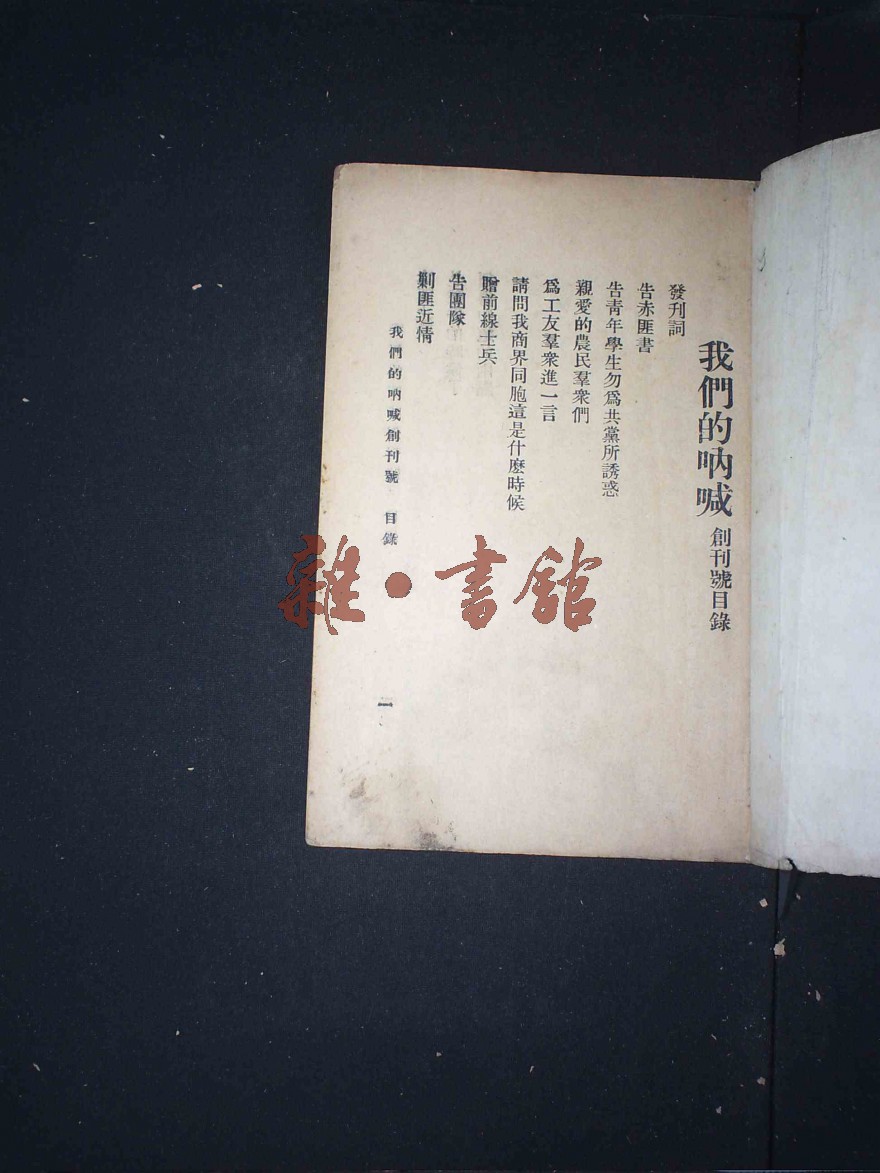 我們的吶喊 創刊號目錄
發刊詞
告赤匪書
告青年學生勿爲共黨所誘惑
親愛的農民羣衆們
爲工友羣衆進一言
請問我商界同胞這是什麽時候
贈前線士兵
告團隊
剿匪近情
我們的吶喊創刊號 目錄
一
雜·書館